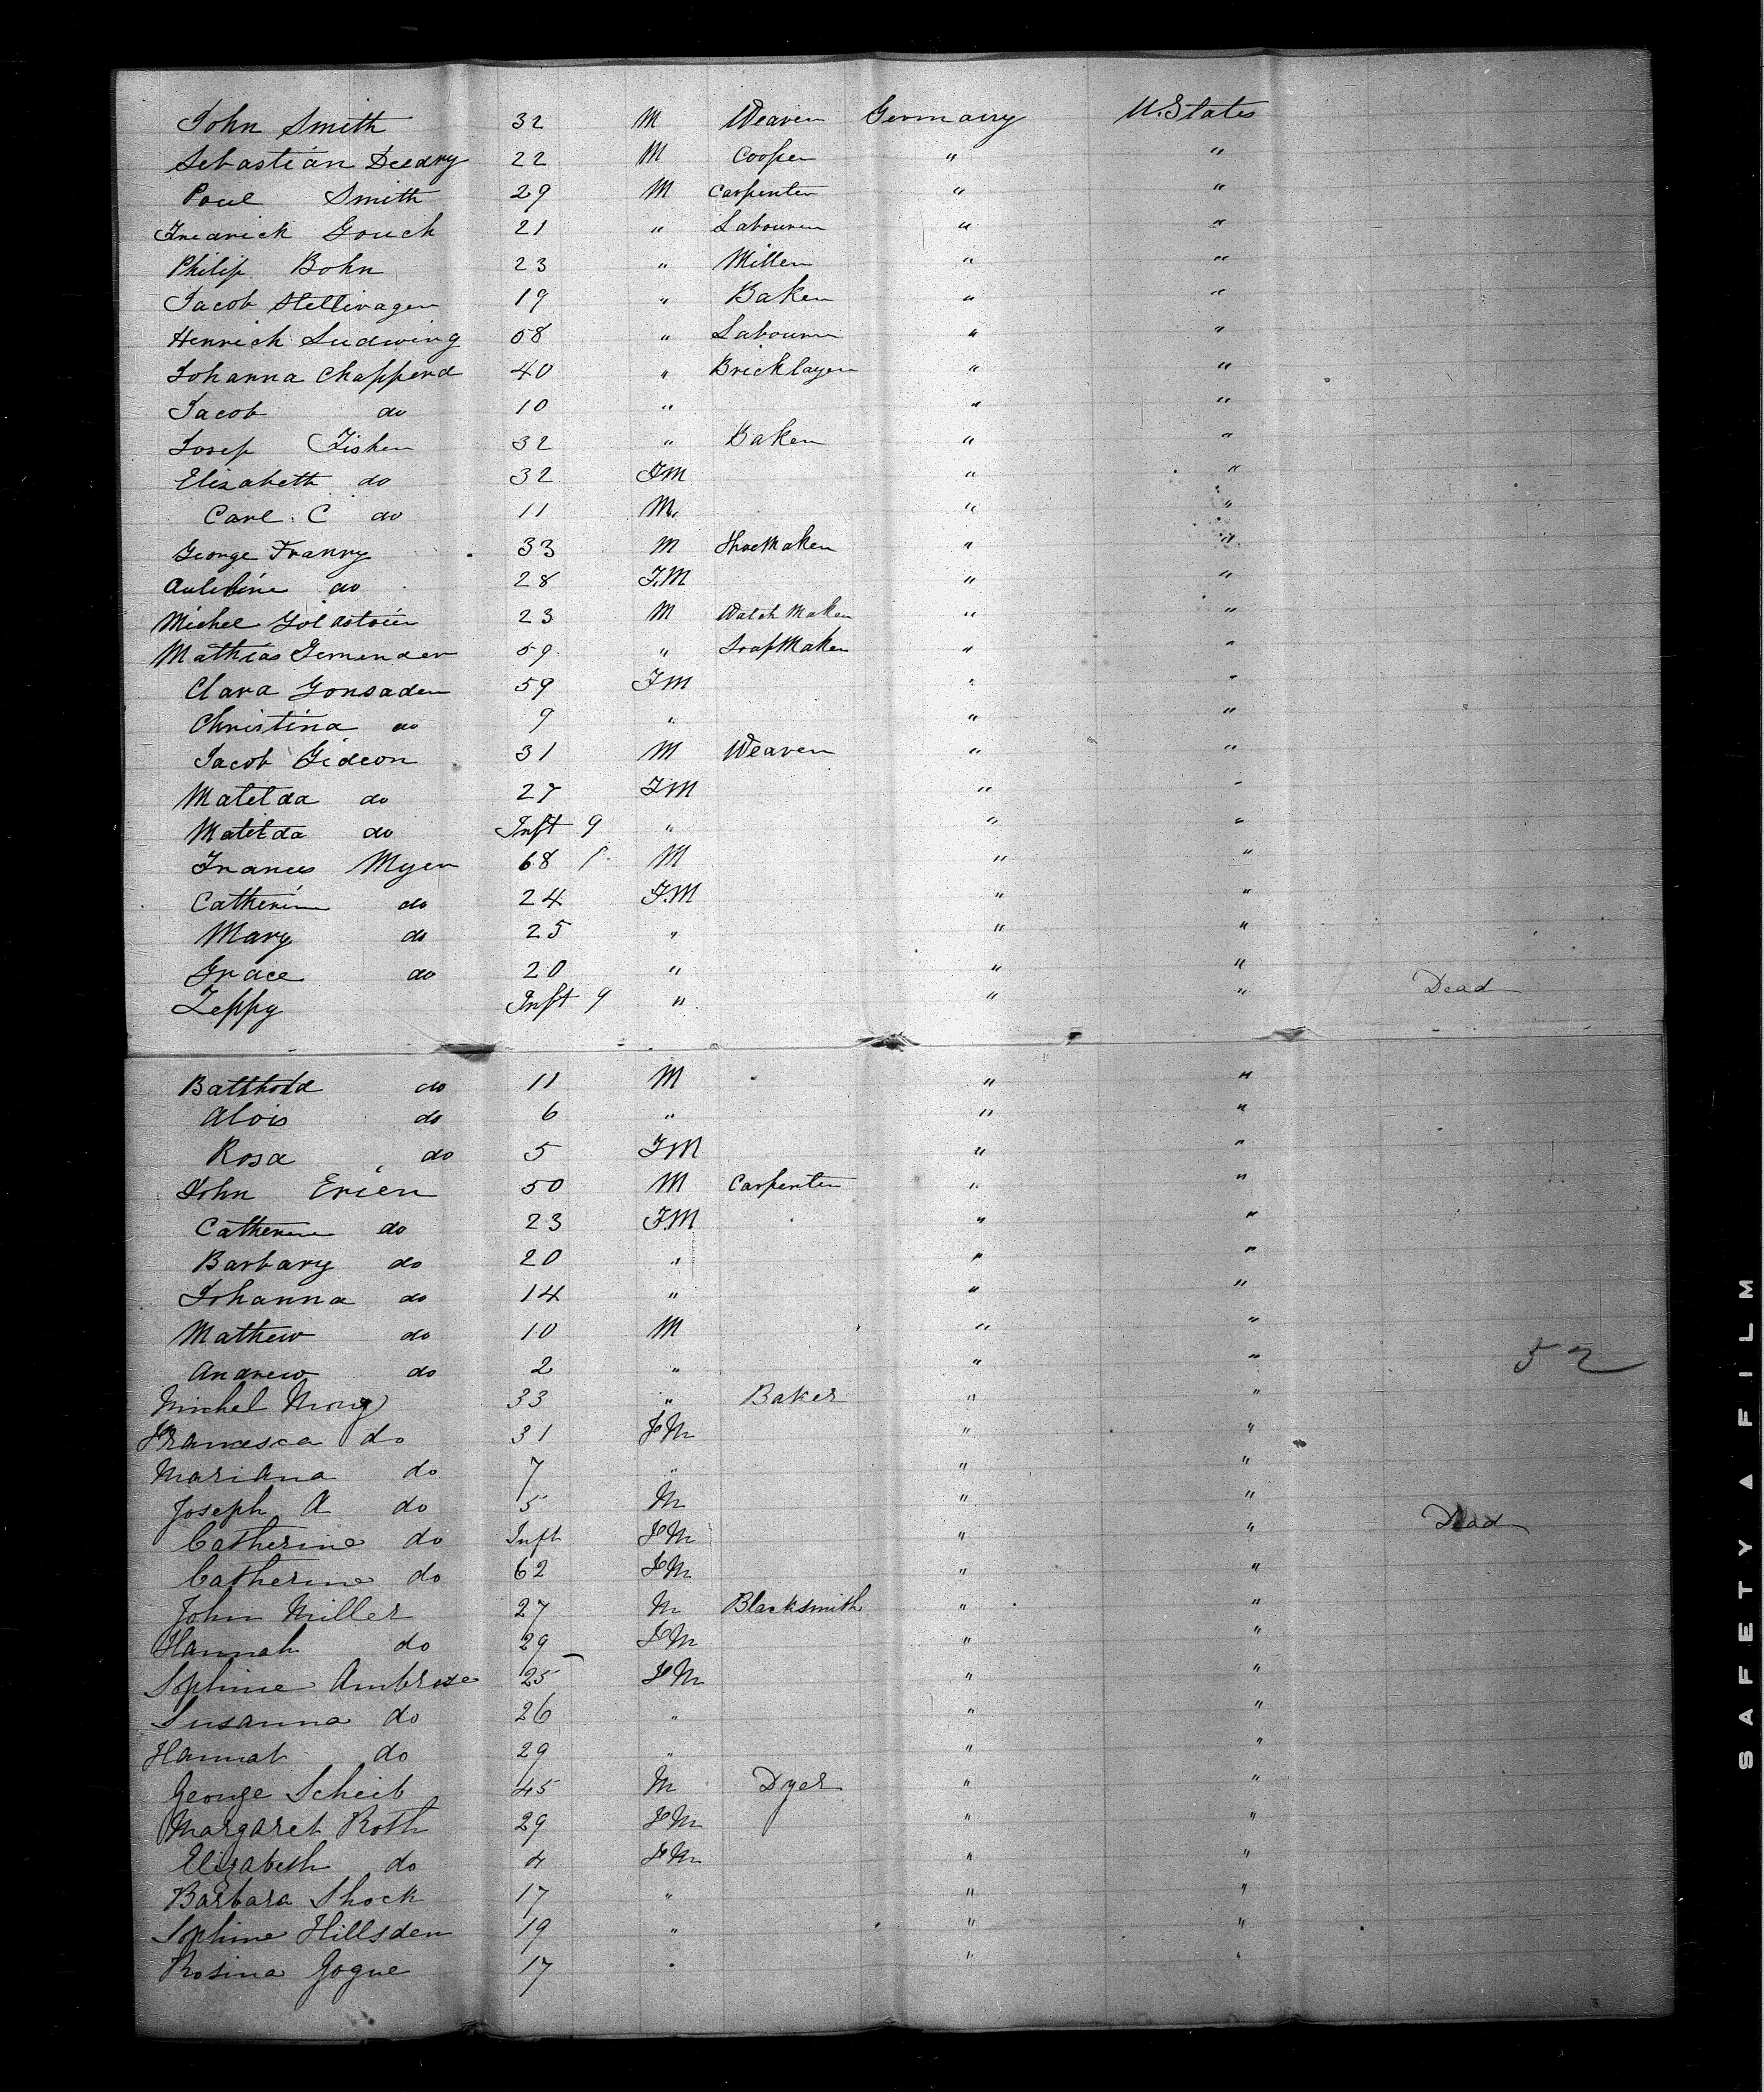 John Smith 32 M Weaver Germany U. States
Sebastian Deedry 22 M Cooper " "
Paul Smith 29 M Carpenter " "
Fredrick Gouch 21 " Labourer " "
Philip Bohn 23 " Miller " "
Jacob Stellwagen 19 " Baker " "
Henrich Ludwing 58 " Labourer " "
Johanna Chapperd 40 " Bricklayer " "
Jacob do 10 " " "
Josep Fisher 32 " Baker " "
Elizabeth do 32 FM " "
Carl. C do 11 M. " "
George Franny 33 M ShoeMaker " "
do 28 F.M " "
Michel Goldstoin 23 M Watch Maker " "
Mathias Gemender 59 " SoapMaker " "
Clara Gonsader 59 FM " "
Christina do 9 " " "
Jacob Gideon 31 M Weaver " "
Matilda do 27 FM " "
Matilda do Inft 9 " " "
Frances Myer 68 M " "
Catherine do 24 F.M " "
Mary do 25 " " "
Grace do 20 " " "
Zeppy Inft 9 " " " Dead
Batthold do 11 M " "
Alois do 6 " " "
Rosa do 5 FM " "
John Erien 50 M Carpenter " "
Catherine do 23 F.M " "
Barbary do 20 " " "
Johanna do 14 " " "
Mathew do 10 M " "
Andrew do 2 " " " 52
Michel Mong 33 " Baker " "
Francesca do 31 FM " "
Mariana do 7 " " "
Joseph A do 5 M " "
Catherine do Inft FM " " Dead
Catherine do 62 FM " "
John Miller 27 M Blacksmith " "
Hannah do 29 FM " "
Sophine Ambrose 25 FM " "
Susanna do 26 " " "
Hannah do 29 " " "
George Scheib 45 M Dyer " "
Margaret Roth 29 FM " "
Elizabeth do 4 FM " "
Barbara Shock 17 " " "
Sophine Hillsden 19 " " "
Rosina Gogne 17 " " "
SAFETY ▲ FILM